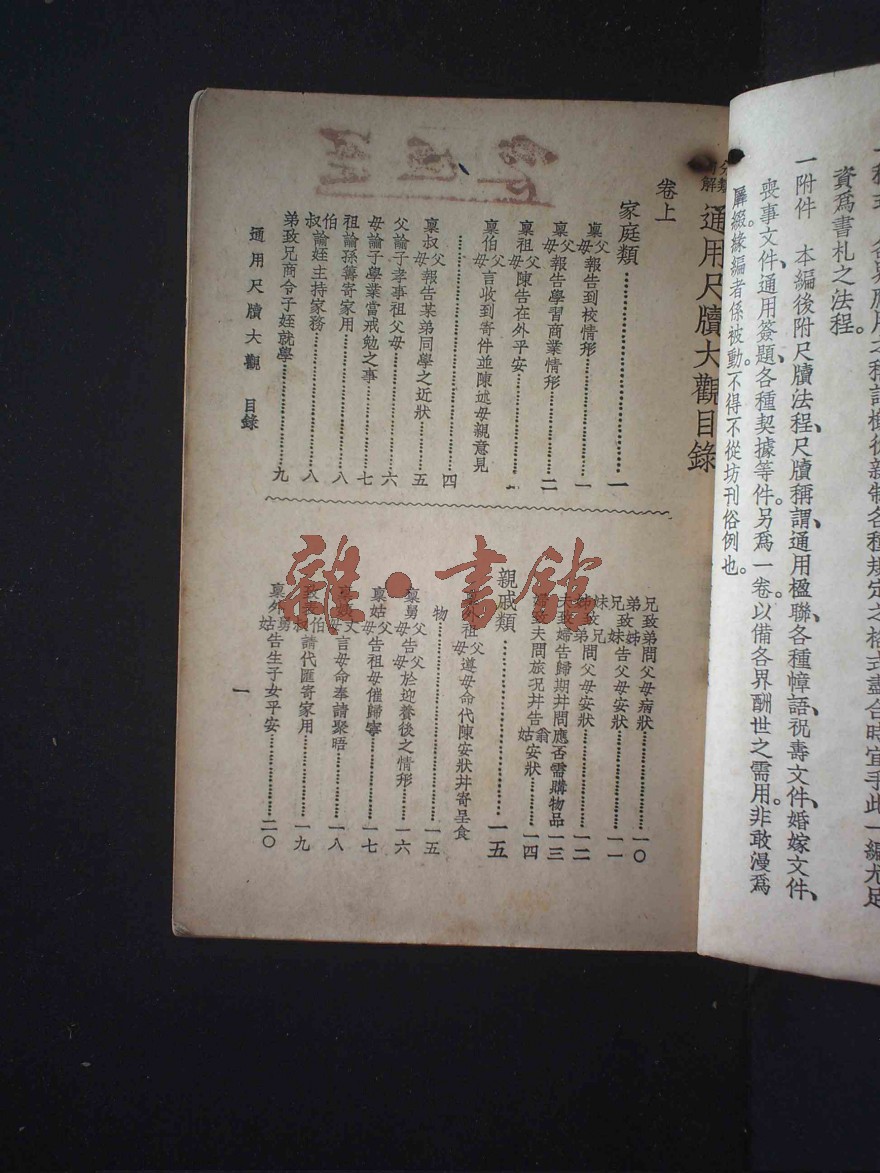 資爲書札之法程。
一附件　本編後附尺牘法程、尺牘稱謂、通用楹聯、各種幛語、祝壽文件、婚嫁文件、
喪事文件、通用簽題、各種契據等件。另爲一卷。以備各界酬世之需用。非敢漫爲
羼綴。緣編者係被動。不得不從坊刊俗例也。
通用尺牘大觀目錄
卷上
家庭類……一
稟父母報告到校情形……一
稟父母報告學習商業情形……二
稟祖父母陳告在外平安……
稟伯父母言收到寄件並陳述母親意見
……四
稟叔父母報告某弟同學之近狀……五
父諭子孝事祖父母……六
母諭子學業當戒勉之事……七
祖諭孫籌寄家用……八
伯叔諭姪主持家務……八
弟致兄商令子姪就學……九
通用尺牘大觀　目錄
兄致弟問父母病狀……一〇
弟兄致姊妹告父母安狀……一一
姊妹致弟兄問父母安狀……一二
夫致婦告歸期幷問應否需購物品……一三
致夫問旅況幷告翁姑安狀……一四
親戚類……一五
外祖父母遵母命代陳安狀幷寄呈食
物……一五
稟舅父母告父母於迎養後之情形……一六
稟姑父母告祖母催歸寧……一七
言母命奉請聚晤……一八
請代匯寄家用……一九
稟外舅姑告生子女平安……二〇
一
雜·書館